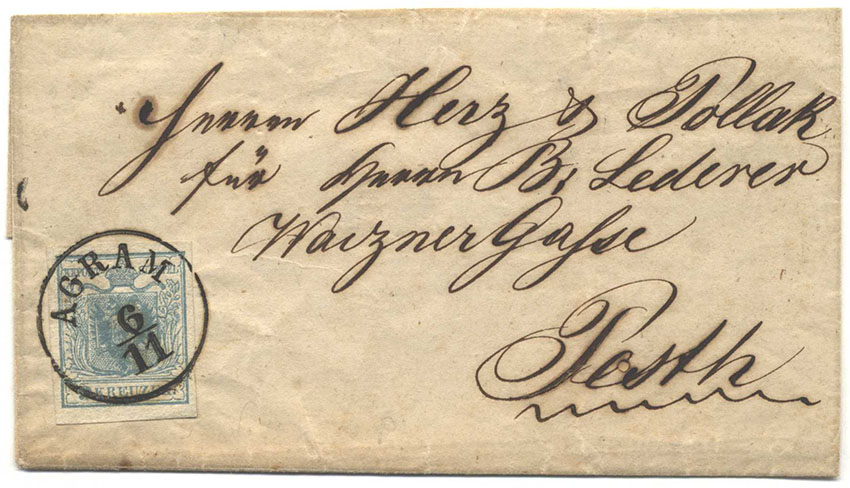 Herrn Herz & Pollak
für Herrn B. Lederer
Waiznergasse
Pesth
AGRAM
6/11
KREUZER